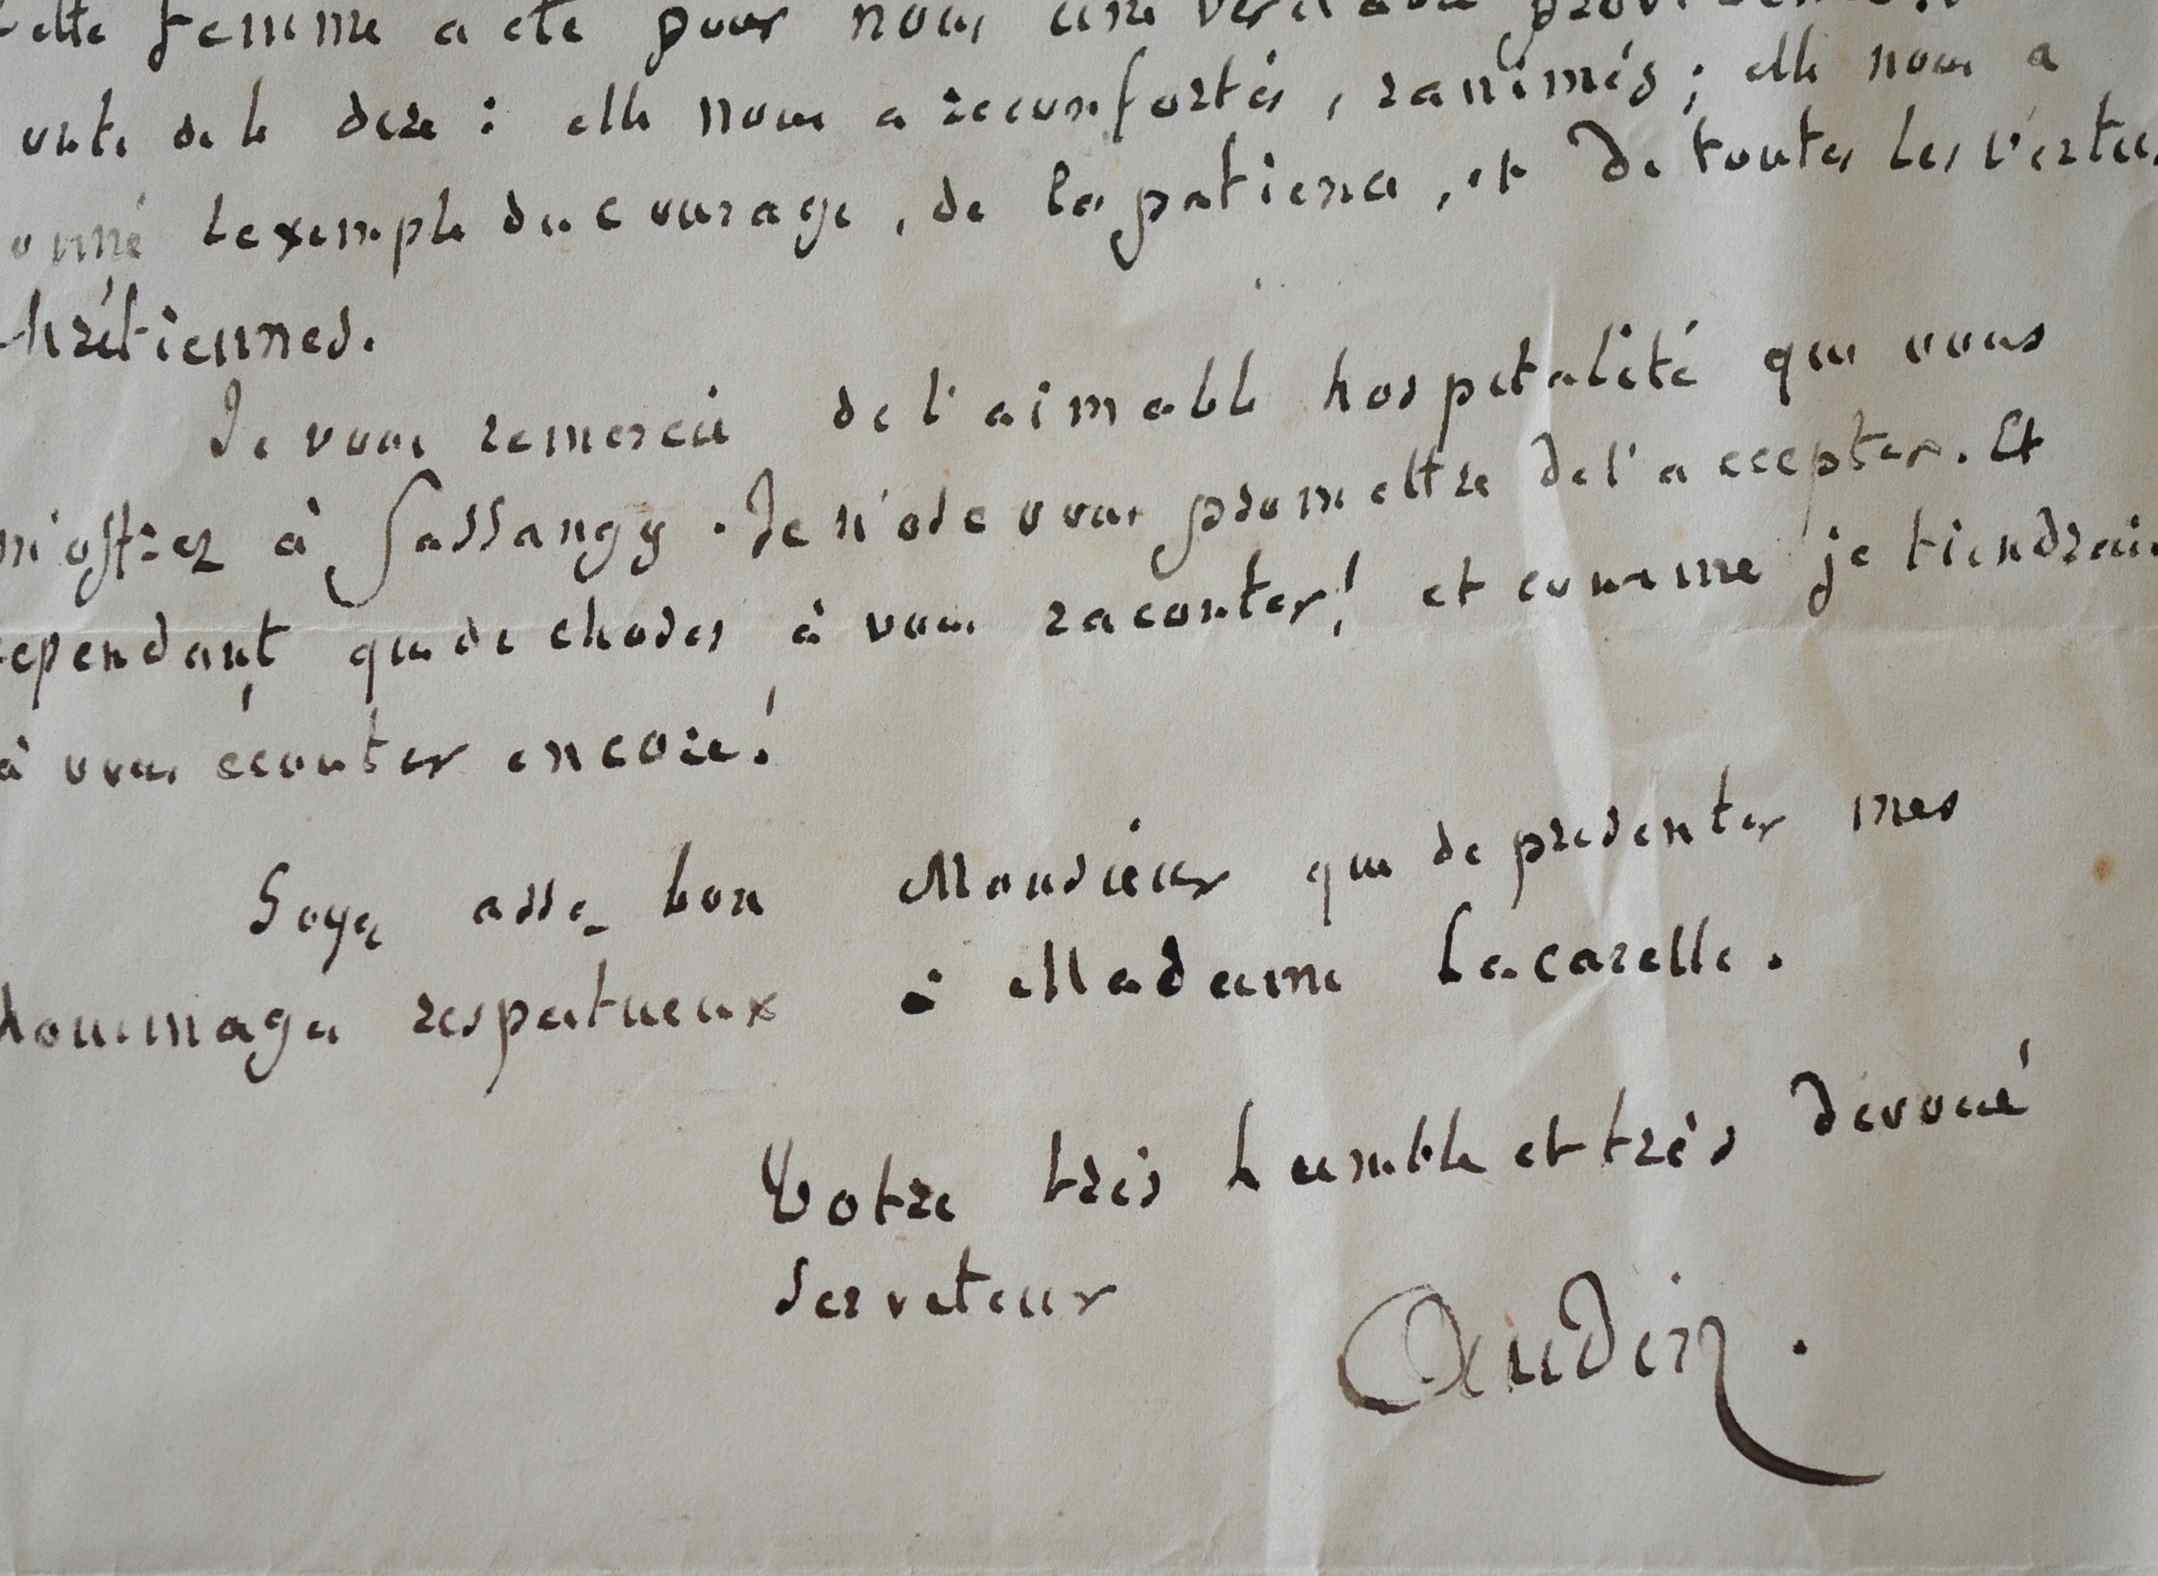 cette femme a été pour nous une véritable providence.
de le dire : elle nous a reconfortés, ranimés ; elle nous a
onné l'exemple du courage, de la patience, et de toutes les vertus
hrétiennes.
Je vous remercie de l'aimable hospitalité que vous
m'offrez à Sassangy. Je n'ose vous promettre de l'accepter. Et
cependant que de choses à vous raconter! et comme je tiendrais
à vous écouter encore!
Soyez assez bon Monsieur que de presenter mes
hommages respectueux à Madame Lacarelle.
Votre très humble et très dévoué
serviteur
Audin.